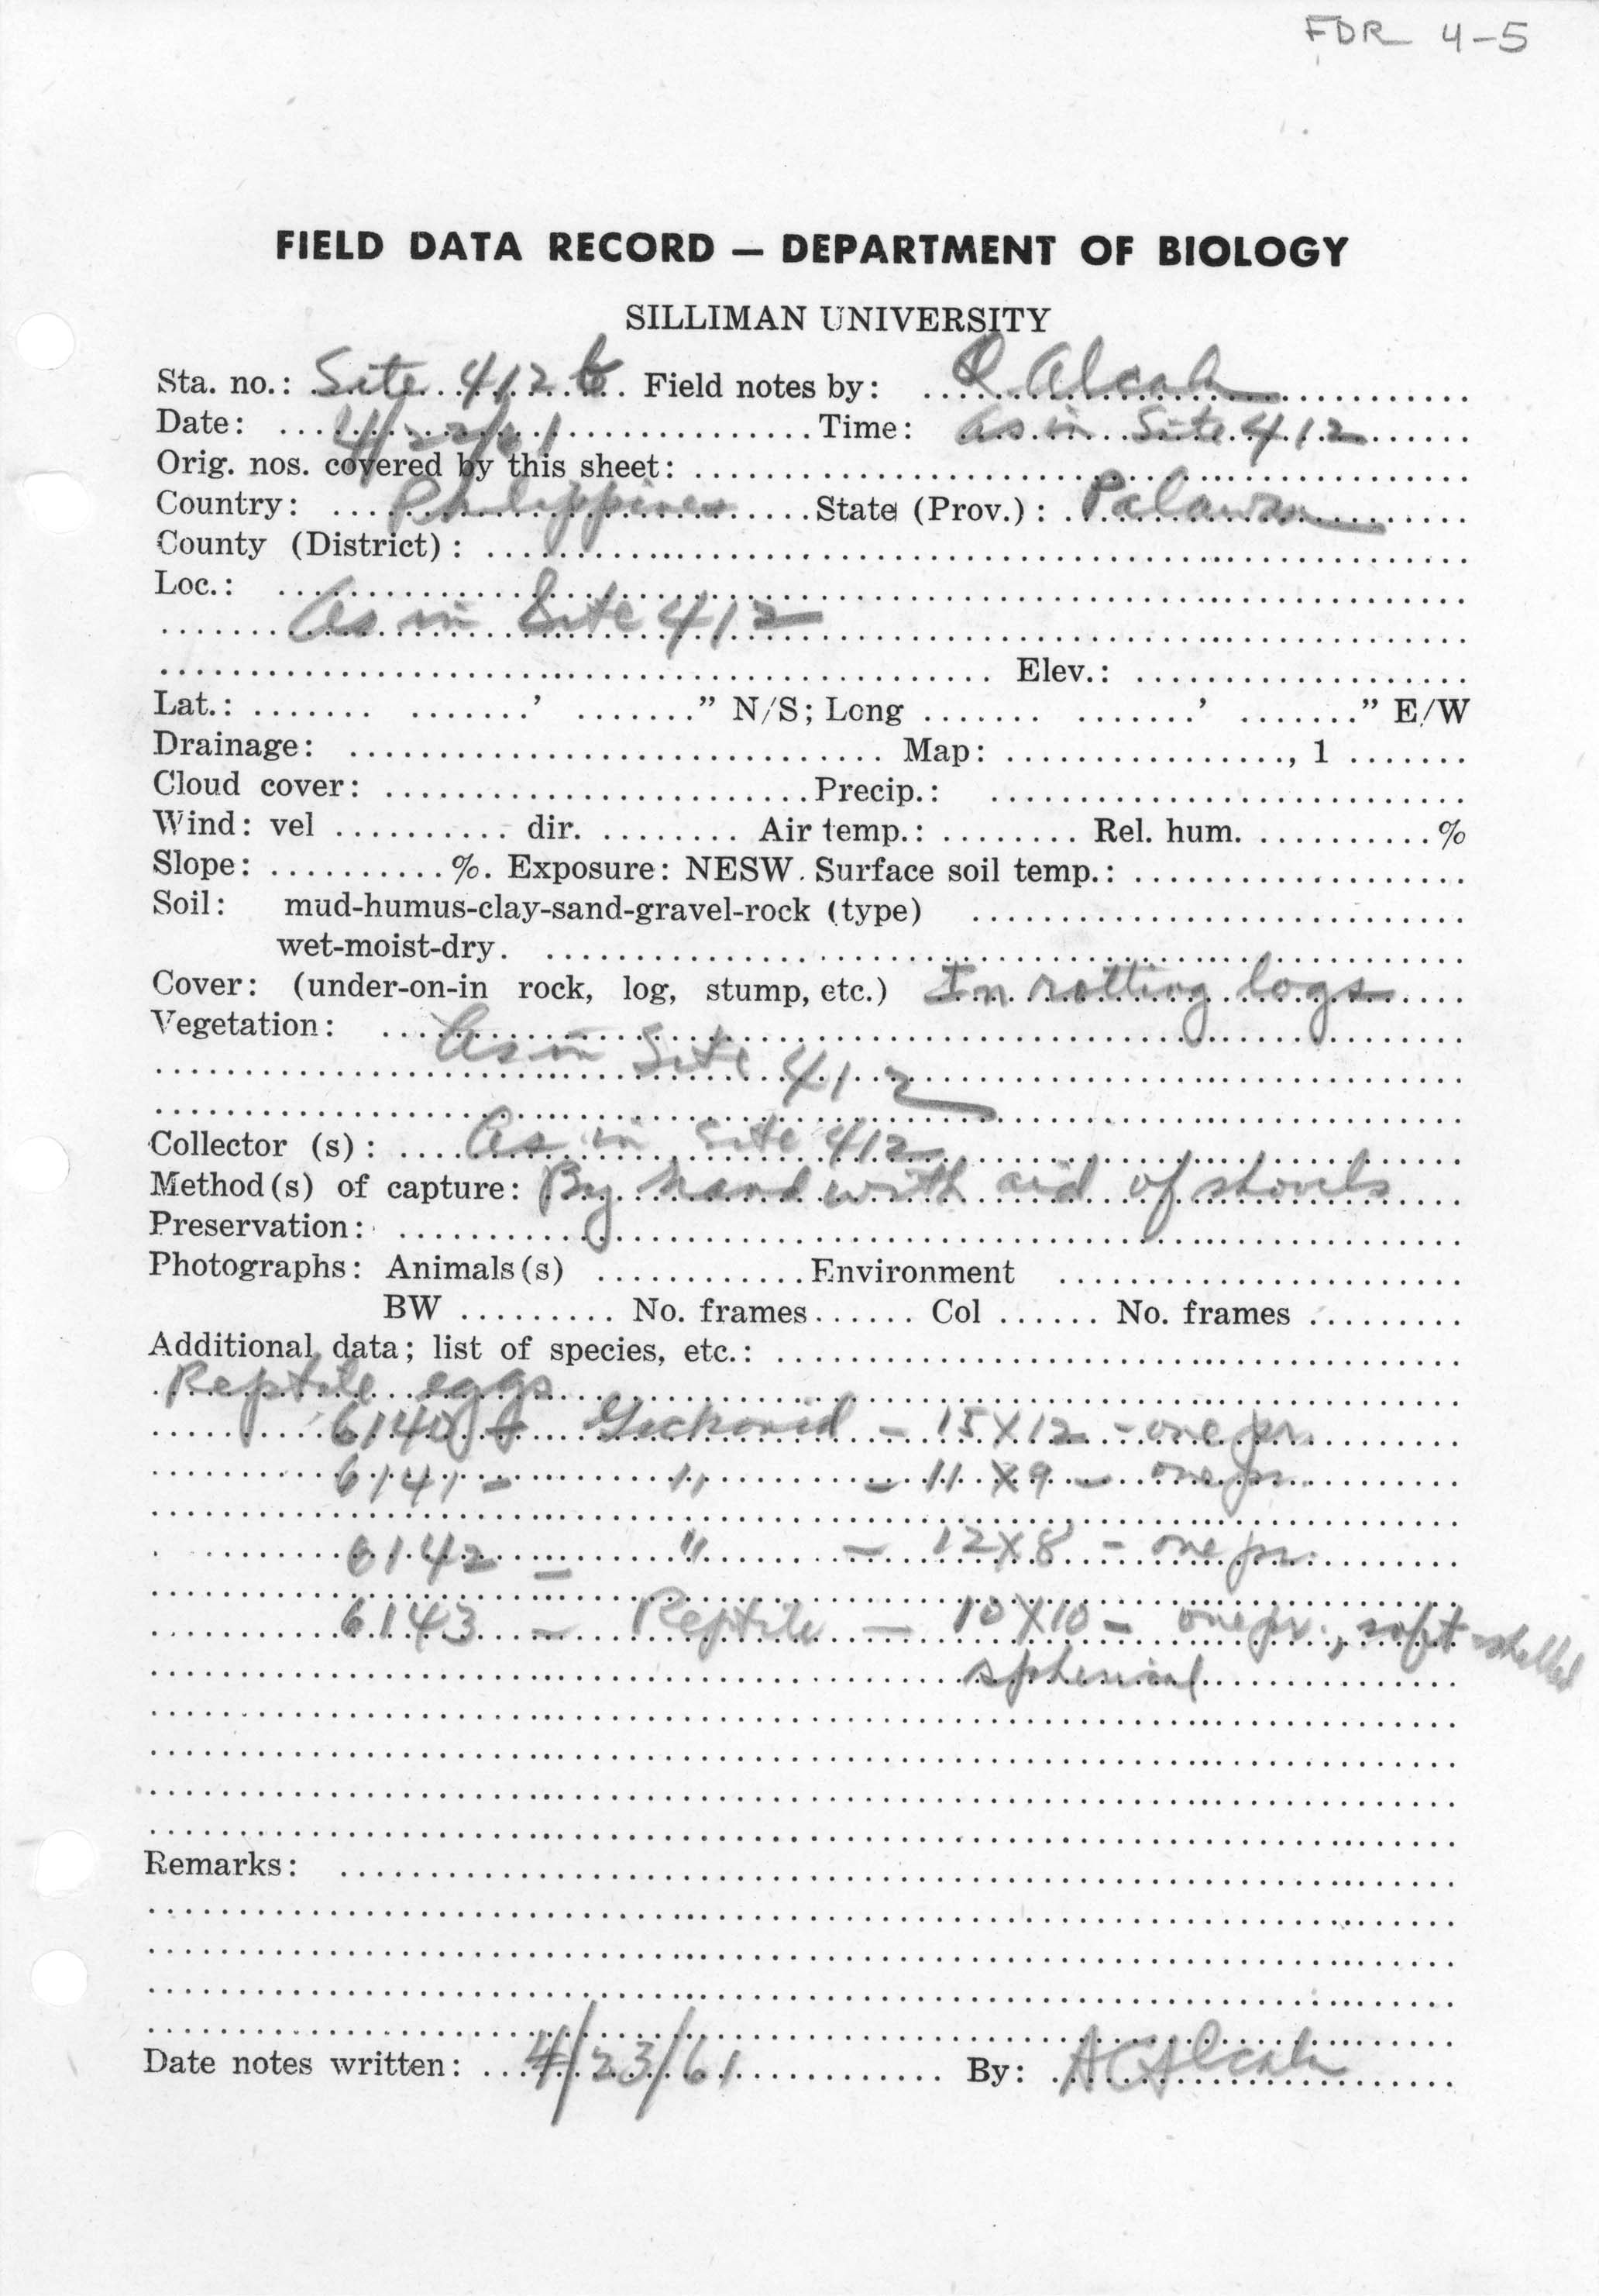 FDR 4-5
FIELD DATA RECORD — DEPARTMENT OF BIOLOGY
SILLIMAN UNIVERSITY
Sta. no.: Site 412 b Field notes by: Alcala
Date: 4/22/61 Time: as in Site 412
Orig. nos. covered by this sheet:
Country: Philippines State (Prov.): Palawan
County (District):
Loc.:
As in Site 412
Elev.:
Lat.: ' " N/S; Long ' " E/W
Drainage: Map: , 1
Cloud cover: Precip.:
Wind: vel dir. Air temp.: Rel. hum. %
Slope: %. Exposure: NESW. Surface soil temp.:
Soil: mud-humus-clay-sand-gravel-rock (type)
wet-moist-dry.
Cover: (under-on-in rock, log, stump, etc.) In rotting logs
Vegetation: As in Site 412
Collector (s): As in Site 412
Method(s) of capture: By hand with aid of shovels
Preservation:
Photographs: Animals(s) Environment
BW No. frames Col No. frames
Additional data; list of species, etc.:
Reptile eggs
6140 - Geckonid - 15X12 - one pr.
6141 - " - 11 X9 - one pr.
6142 - " - 12X8 - one pr.
6143 - Reptile - 10X10 - one pr., soft-shelled
spherical
Remarks:
Date notes written: 4/23/61 By: ACAlcala